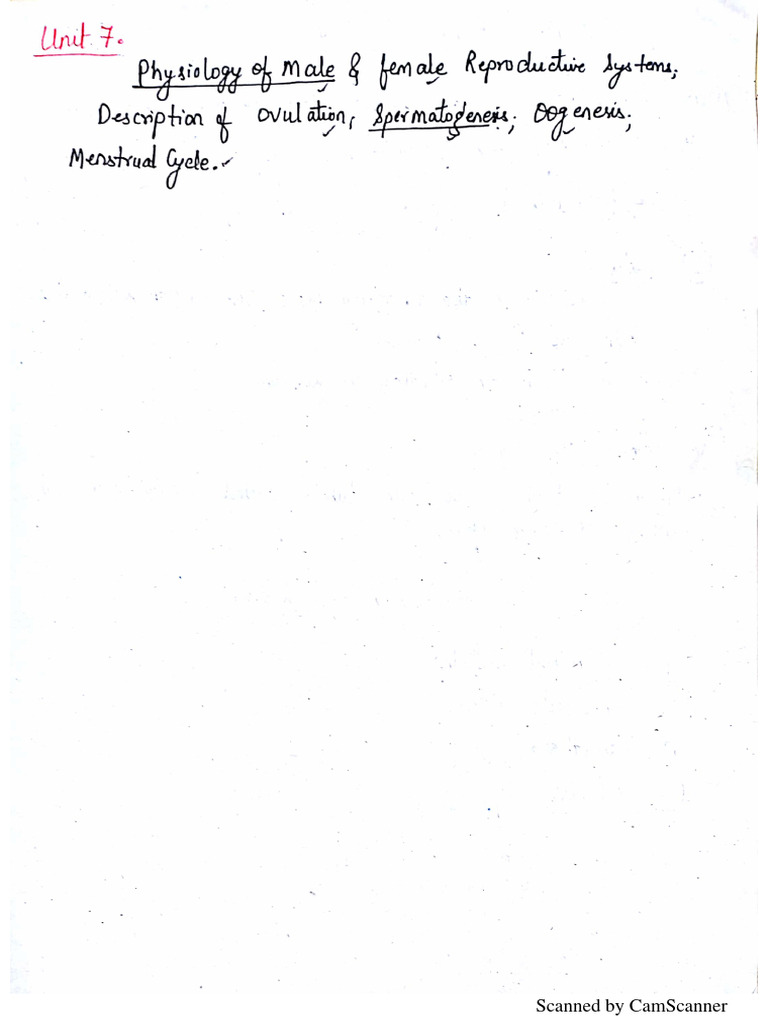 Unit 7.
Physiology of Male & female Reproductive Systems;
Description of Ovulation, Spermatogenesis; Oogenesis;
Menstrual Cycle.
Scanned by CamScanner